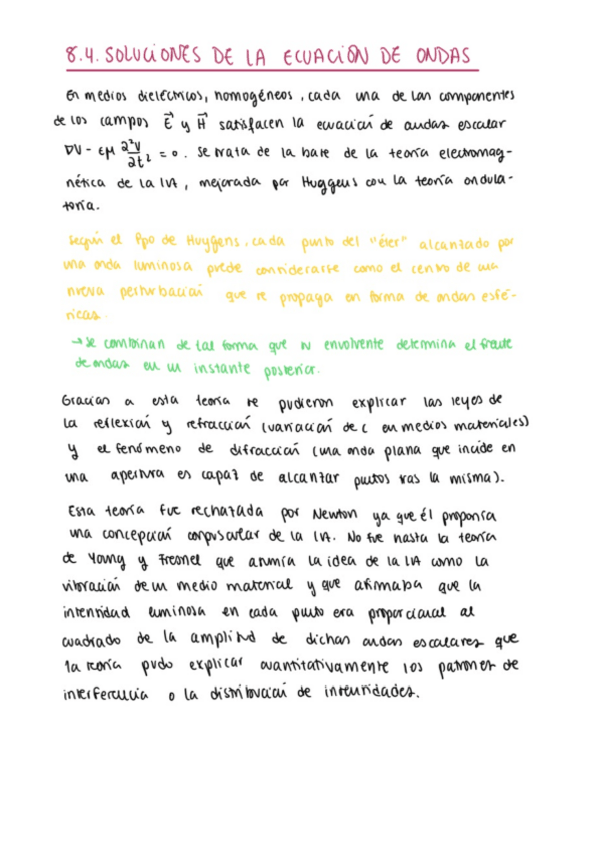 8.4. SOLUCIONES DE LA ECUACIÓN DE ONDAS
En medios dieléctricos, homogéneos, cada una de las componentes
de los campos E⃗ y H⃗ satisfacen la ecuación de ondas escalar
∇V - εμ ∂²V/∂t² = 0. Se trata de la base de la teoría electromag-
nética de la luz, mejorada por Huggens con la teoría ondula-
toría.
Según el Ppo de Huygens, cada punto del "éter" alcantado por
una onda luminosa puede considerarse como el centro de una
nueva perturbación que se propaga en forma de ondas esfé-
ricas.
→ se combinan de tal forma que su envolvente determina el frente
de ondas en un instante posterior.
Gracias a esta teoría se pudieron explicar las leyes de
la reflexión y refracción (variación de c en medios materiales)
y el fenómeno de difracción (una onda plana que incide en
una apertura es capaz de alcanzar puntos tras la misma).
Esta teoría fue rechazada por Newton ya que él proponía
una concepción corpuscular de la luz. No fue hasta la teoría
de Young y Fresnel que asumía la idea de la luz como la
vibración de un medio material y que afirmaba que la
intensidad luminosa en cada punto era proporcional al
cuadrado de la amplitud de dichas ondas escalares que
la teoría pudo explicar cuantitativamente los patrones de
interferencia o la distribución de intensidades.